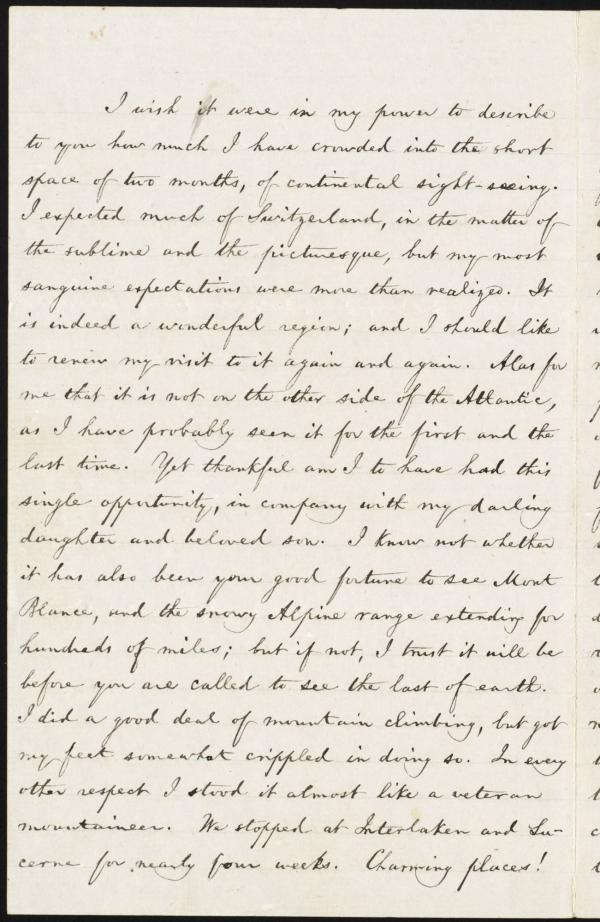 I wish it were in my power to describe
to you how much I have crowded into the short
space of two months, of continental sight-seeing.
I expected much of Switzerland, in the matter of
the sublime and the picturesque, but my most
sanguine expectations were more than realized. It
is indeed a wonderful region; and I should like
to renew my visit to it again and again. Alas for
me that it is not on the other side of the Atlantic,
as I have probably seen it for the first and the
last time. Yet thankful am I to have had this
single opportunity, in company with my darling
daughter and beloved son. I know not whether
it has also been your good fortune to see Mont
Blance, and the snowy Alpine range extending for
hundreds of miles; but if not, I trust it will be
before you are called to see the last of earth.
I did a good deal of mountain climbing, but got
my feet somewhat crippled in doing so. In every
other respect I stood it almost like a veteran
mountaineer. We stopped at Interlaken and Lu-
cerne for nearly four weeks. Charming places!